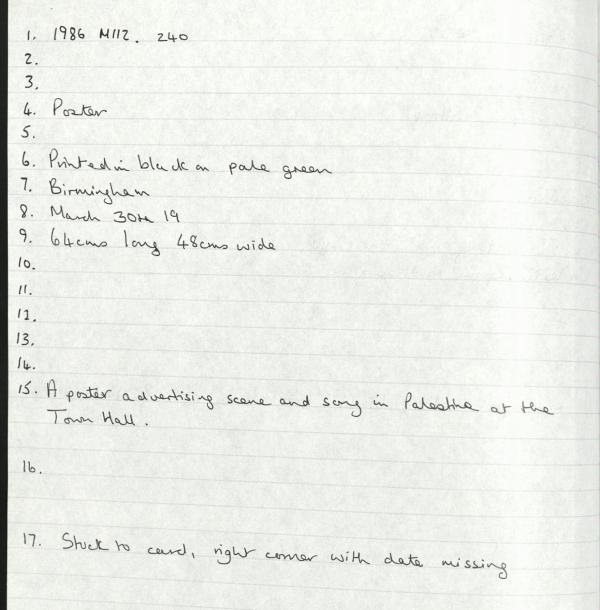 1. 1986 M112. 240
2.
3.
4. Poster
5.
6. Printed in black on pale green
7. Birmingham
8. March 30th 19
9. 64cms long 48cms wide
10.
11.
12.
13.
14.
15. A poster advertising scene and song in Palestine at the
Town Hall.
16.
17. Stuck to card, right corner with date missing